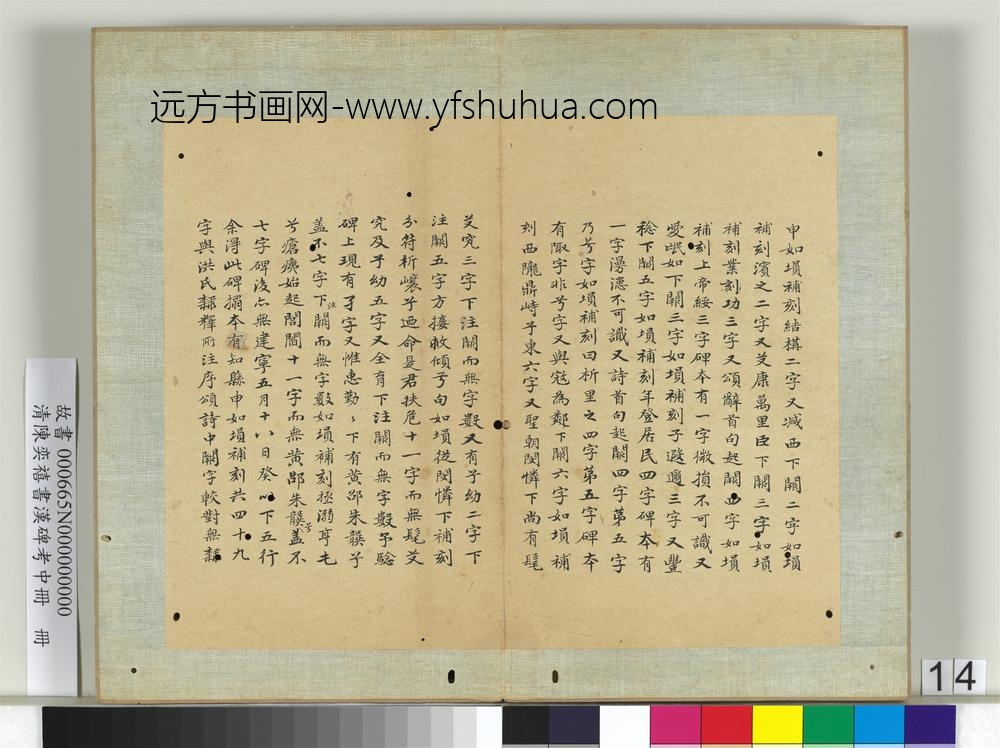 远方书画网-www.yfshuhua.com
申如塤補刻結構二字又減西下闕二字如塤
補刻濱之二字又芟康萬里臣下闕三字如塤
補刻業刻功三字又頌辭首句起闕四字如塤
補刻上帝綏三字碑本有一字微損不可識又
愛氓如下闕三字如塤補刻子遐邇三字又豐
稔下闕五字如塤補刻年登居民四字碑本有
一字漫漶不可識又詩首句起闕四字苐五字
乃兮字如塤補刻曰析里之四字第五字碑本
有陬字非兮字又與寇為鄰下闕六字如塤補
刻西隴鼎峙兮東六字又聖朝閔憐下尚有髦
艾究三字下注闕而無字數又有兮幼二字下
注闕五字方接救傾兮句如塤從閔憐下補刻
分符析壤兮迺命是君扶危十一字而無髦艾
究及兮幼五字又全育下注闕而無字數兮驗
碑上現有孑字又惟惠勤〻下有黃邵朱龔兮
蓋不七字下注闕而無字數如塤補刻拯溺亨屯
兮瘡痍始起閭閻十一字而無黃邵朱龔兮蓋不
七字碑後亦無建寧五月十八日癸下五行
余淂此碑搨本有知縣申如塤補刻共四十九
字與洪氏隸釋所注序頌詩中闕字較對無
故書 000665N000000000
清陳奕禧書漢碑考中冊 冊
14